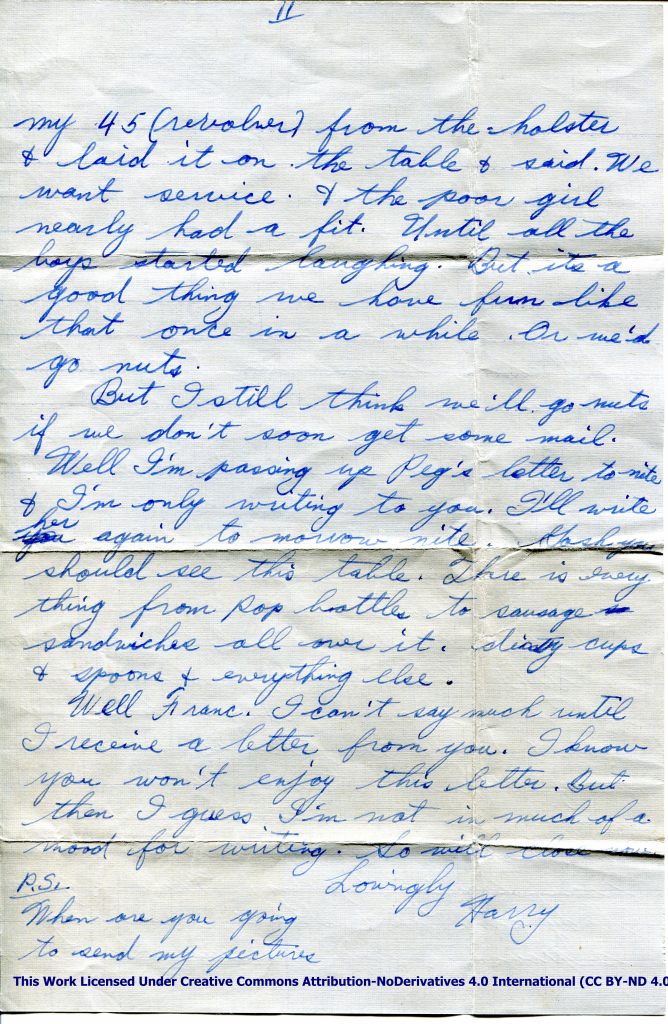 II
my 45 (revolver) from the holster
& laid it on the table & said. We
want service. & the poor girl
nearly had a fit. Until all the
boys started laughing. But its a
good thing we have fun like
that once in a while. Or we'd
go nuts.
But I still think we'll go nuts
if we don't soon get some mail.
Well I'm passing up Peg's letter to nite
& I'm only writing to you. I'll write
her again to morrow nite. Gosh you
should see this table. Thre is every
thing from pop bottles to sausage
sandwiches all over it. dirty cups
& spoons & everything else.
Well Franc. I can't say much until
I receive a letter from you. I know
you won't enjoy this letter. But
then I guess I'm not in much of a
mood for writing. So will close now.
Lovingly
Harry
P.S.
When are you going
to send my pictures
This Work Licensed Under Creative Commons Attribution-NoDerivatives 4.0 International (CC BY-ND 4.0